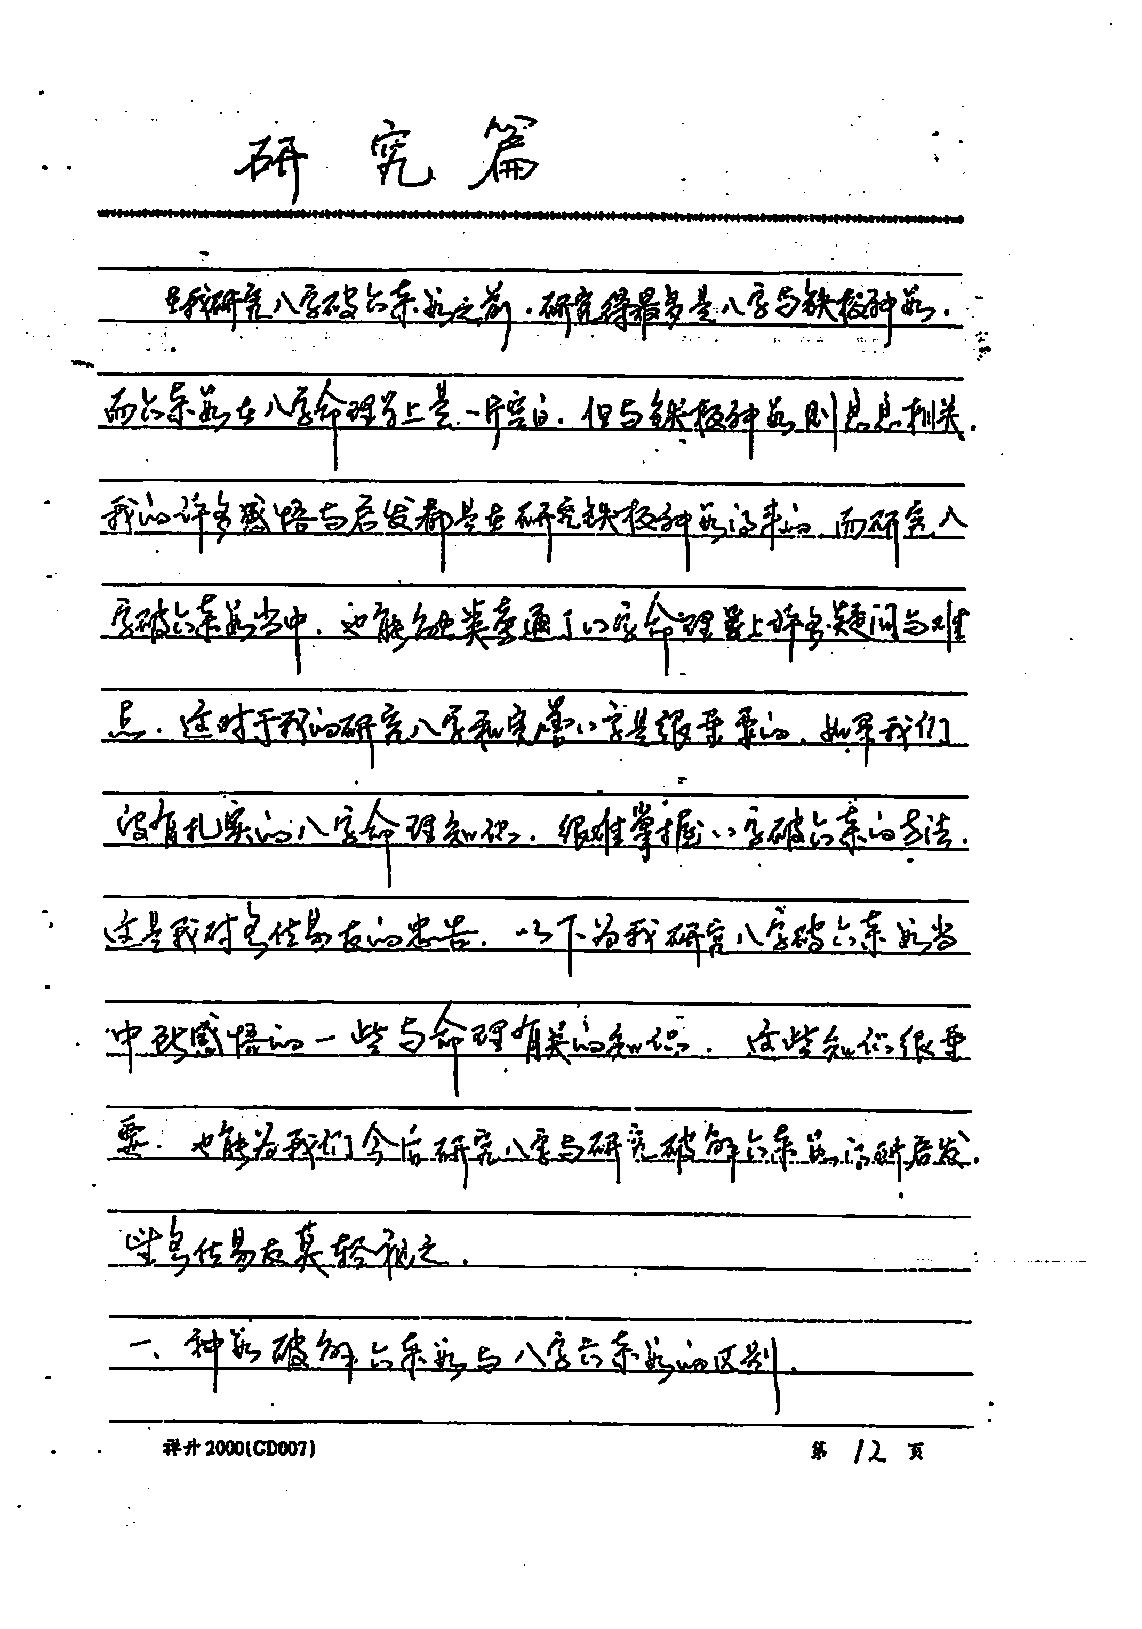 研究篇
我研究八字破六亲数之前，研究得最多是八字与铁板神数，
而六亲数在八字命理学上是一片空白，但与铁板神数则息息相关。
我的许多感悟与启发都是在研究铁板神数得来的，而研究八
字破六亲数当中，也能触类旁通了八字命理学上许多疑问与难
点，这对于我的研究八字和完善八字是很重要的，如果我们
没有扎实的八字命理知识，很难掌握八字破六亲的方法，
这是我对各位易友的忠告，以下为我研究八字破六亲数当
中所感悟的一些与命理有关的知识，这些知识很重
要，也能为我们今后研究八字与研究破解六亲数的研启发，
望各位易友莫轻视之。
一、神数破解六亲数与八字六亲数的区别。
祥升2000(CD007)
第 12 页